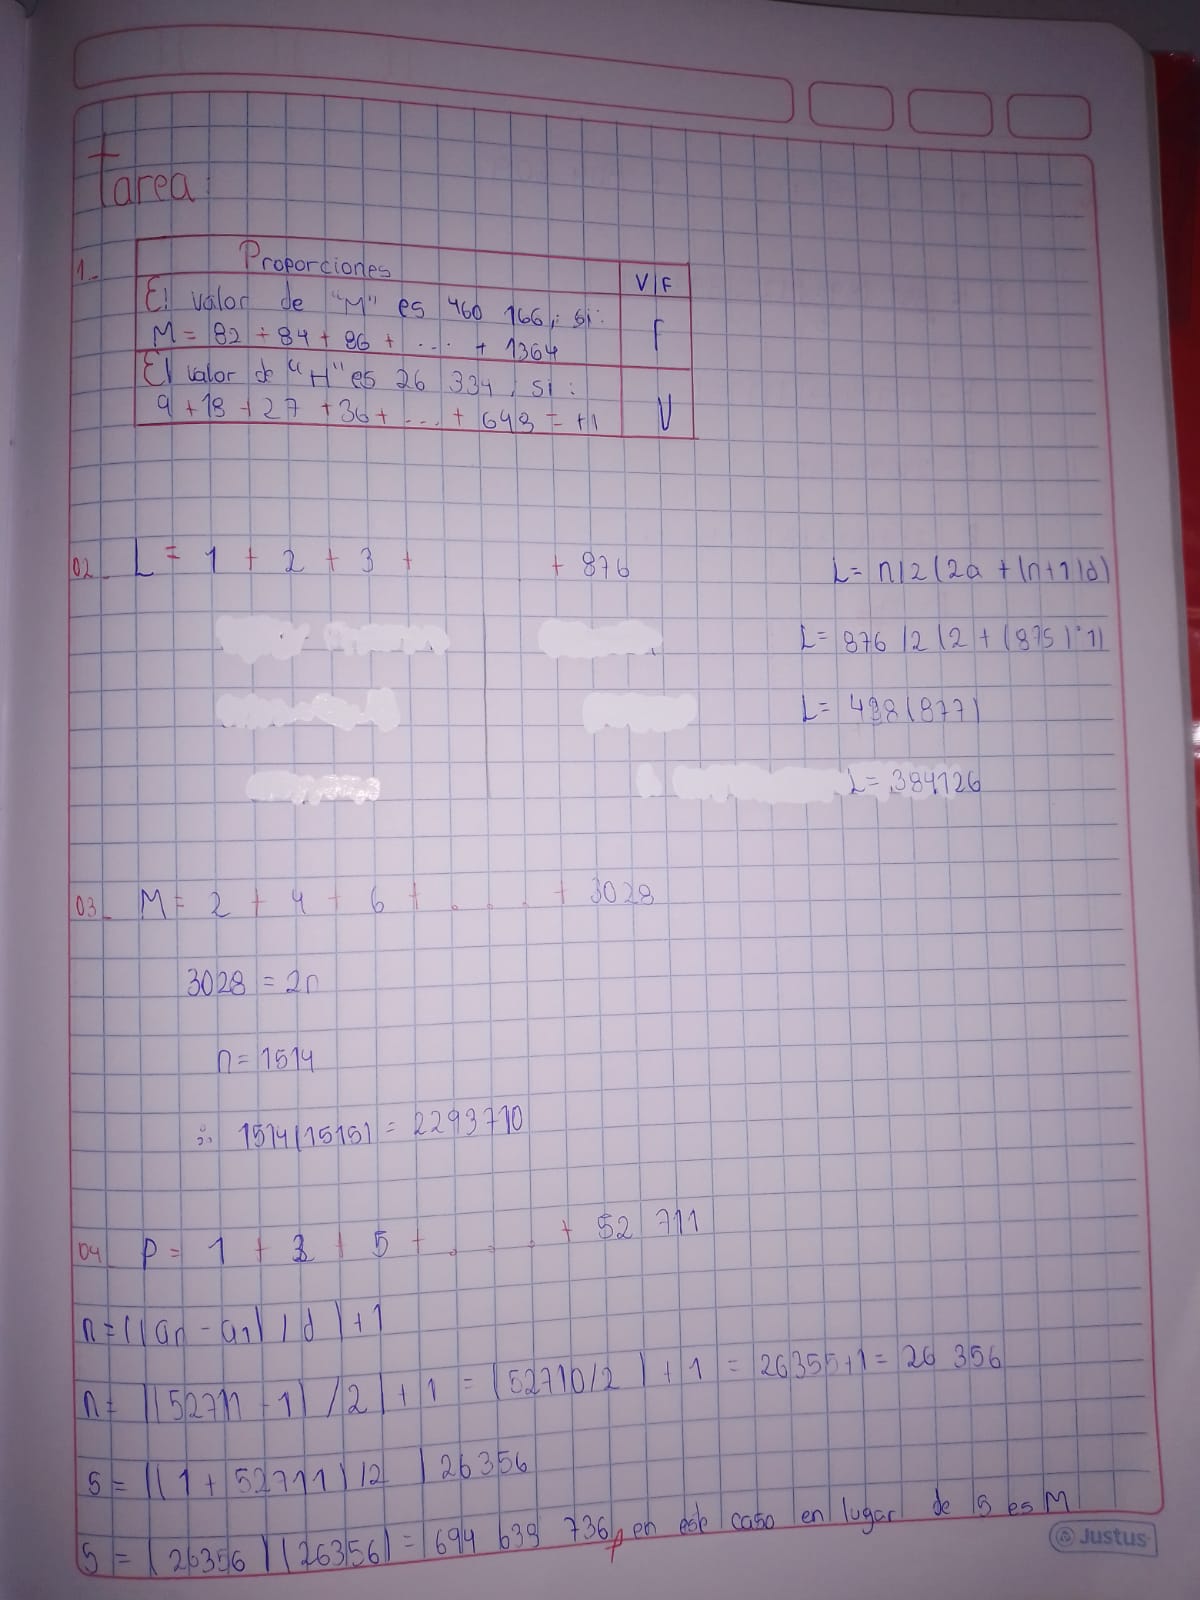 tarea:
1.-
Proporciones V/F
El valor de "M" es 460 166, si: F
M = 82 + 84 + 86 + .... + 1364
El valor de "H" es 26 334, si: V
9 + 18 + 27 + 36 + .... + 648 = H
02.- L = 1 + 2 + 3 + + 876
L = n/2 (2a + (n+1)d)
L = 876/2 (2 + (875)·1)
L = 438 (877)
L = 384126
03.- M = 2 + 4 + 6 + . . . + 3028
3028 = 2n
n = 1514
∴ 1514(1515) = 2293710
04.- P = 1 + 3 + 5 + . . . + 52 711
n = ((an - a1) / d) + 1
n = ((52711 - 1) / 2) + 1 = (52710/2) + 1 = 26355+1 = 26 356
S = ((1 + 52711)/2) 26356
S = (26356)(26356) = 694 639 736, en este caso en lugar de S es M
Justus